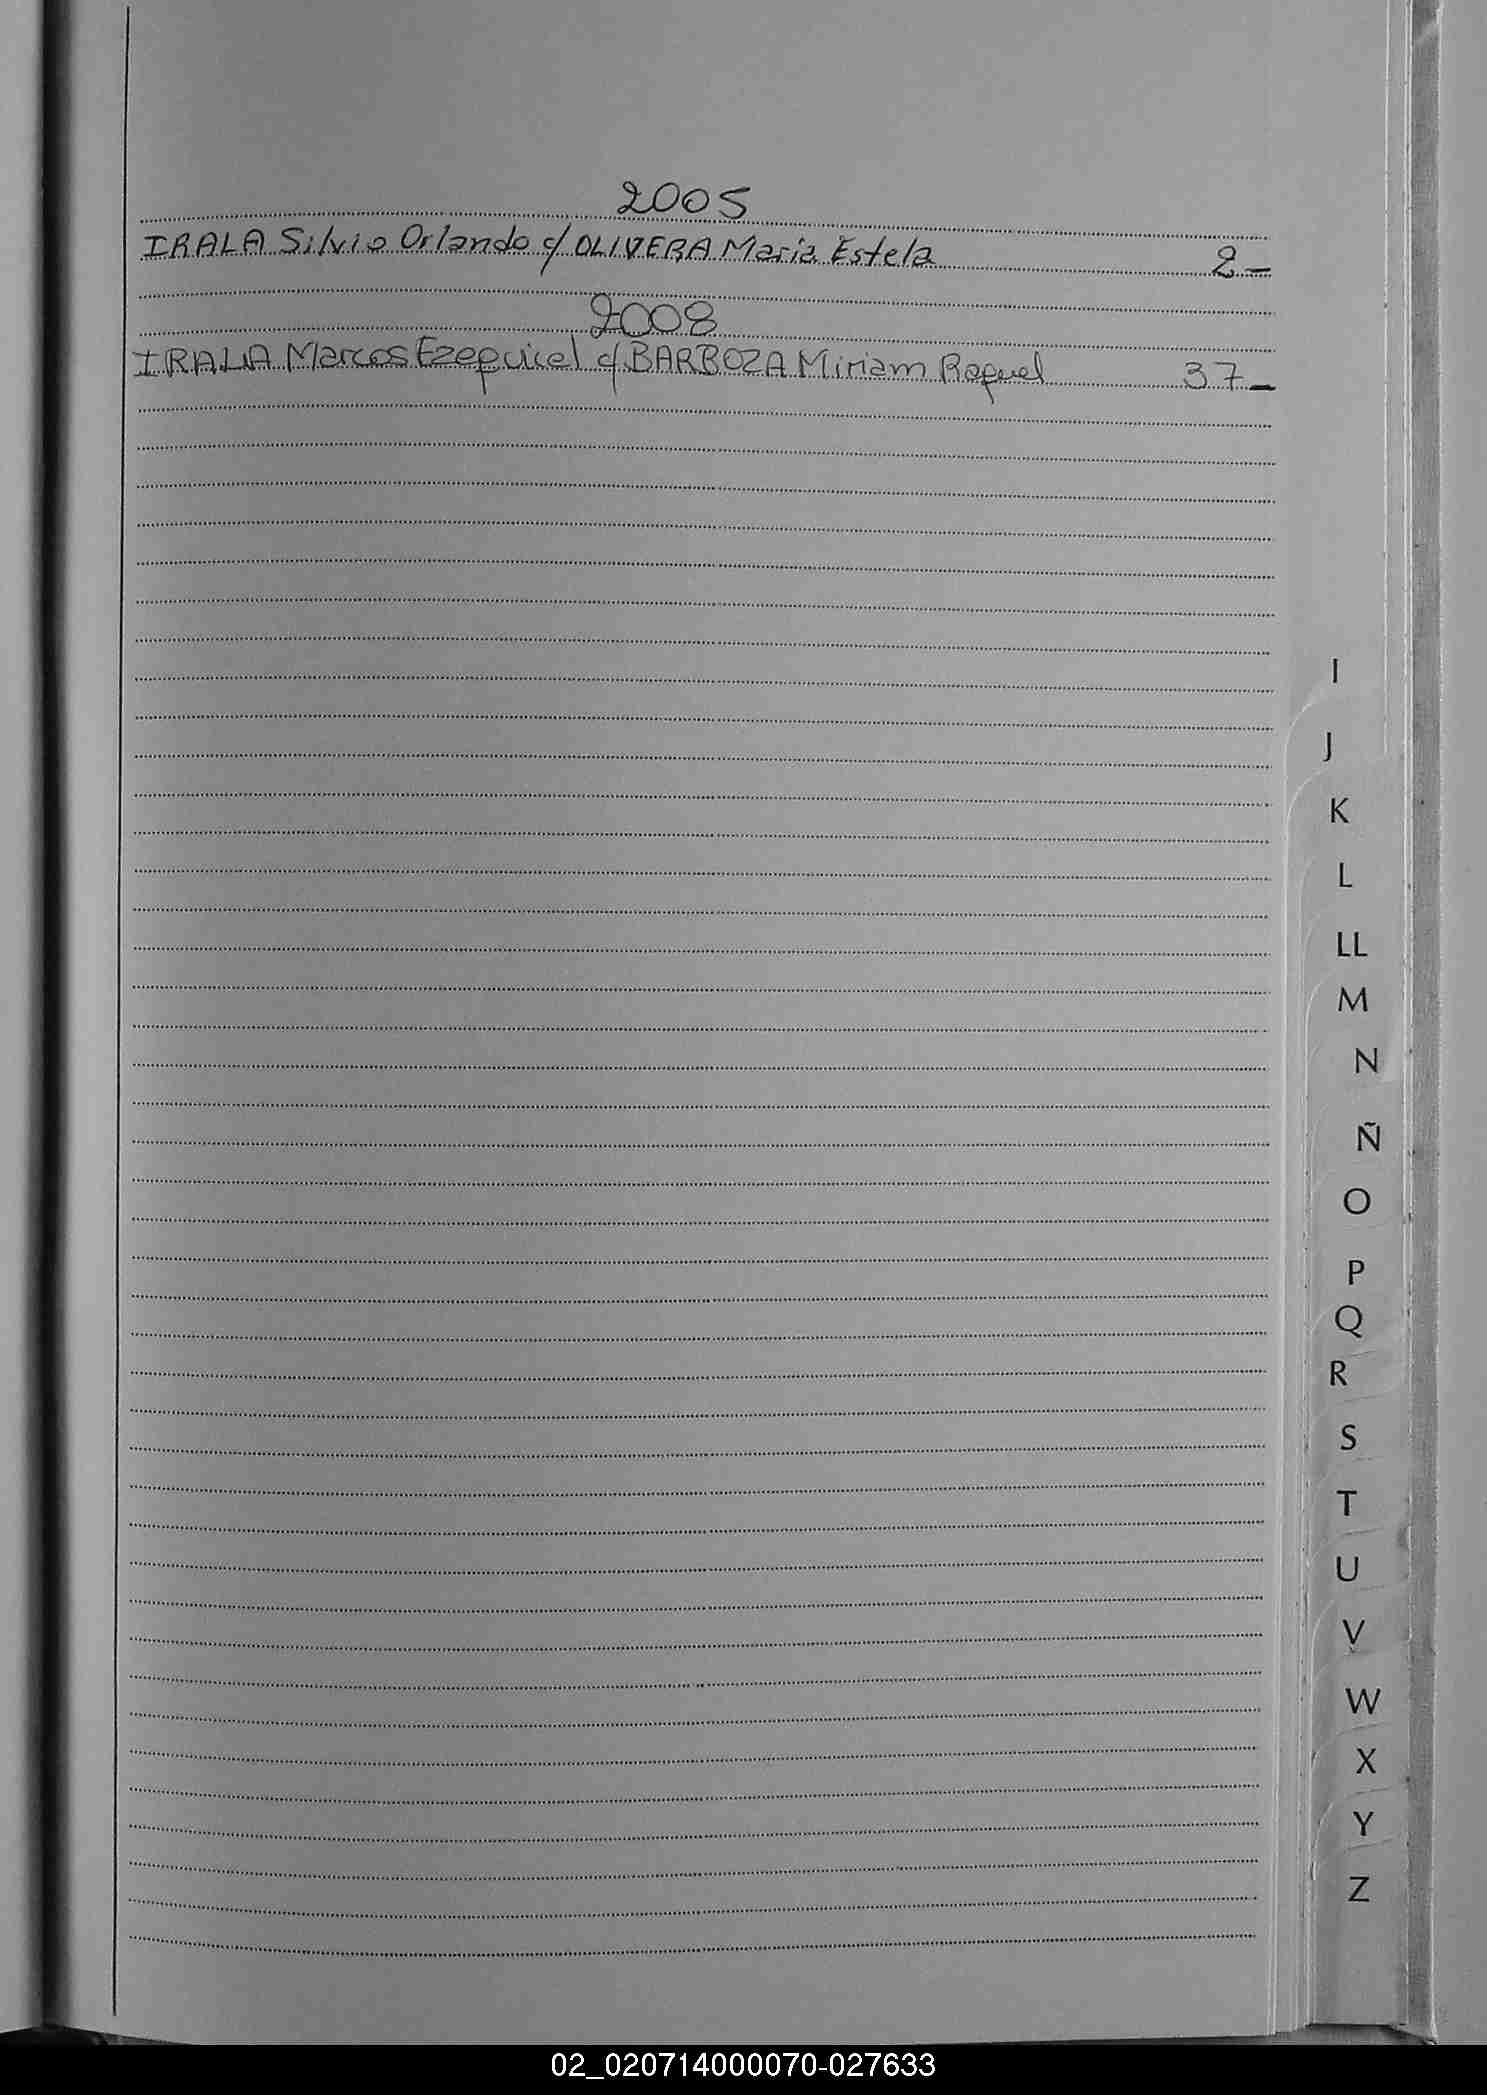 2005
IRALA Silvio Orlando c/ OLIVERA Maria Estela 2-
2008
IRALA Marcos Ezequiel c/ BARBOZA Miriam Raquel 37-
I
J
K
L
LL
M
N
Ñ
O
P
Q
R
S
T
U
V
W
X
Y
Z
02_020714000070-027633